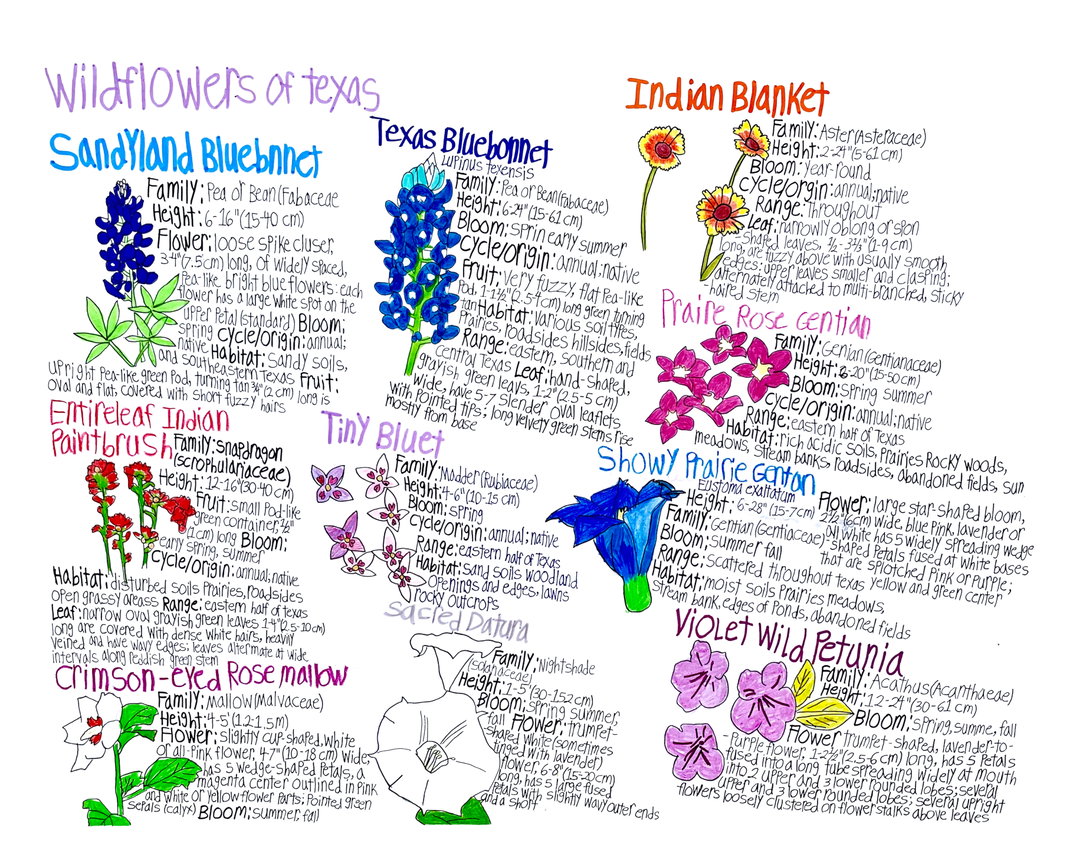 Wildflowers of Texas
Sandyland Bluebnnet
Family: Pea or Bean (Fabaceae
Height: 6-16" (15-40 cm)
Flower: loose spike cluser,
3-4" (7.5 cm) long, of widely spaced,
Pea-like bright blue flowers: each
flower has a large white spot on the
upper Petal (standard) Bloom:
spring Cycle/orgin: annual;
native Habitat: Sandy soils,
and southeastern Texas Fruit:
upright Pea-like green Pod, turning tan 3/4" (2 cm) long is
oval and flat, covered with short fuzzy hairs
Texas Bluebonnet
Lupinus texensis
Family: Pea or Bean (Fabaceae)
Height: 6-24" (15-61 cm)
Bloom: sprin early summer
Cycle/orgin: annual: native
Fruit: very fuzzy, flat Pea-like
Pod 1-1½" (2.5-4 cm) long green turning
tan Habitat: various soil types,
Prairies, roadsides hillsides, fields
Range: eastern, southern and
central Texas Leaf: hand-shaped,
grayish green leavs, 1-2" (2.5-5 cm)
wide, have 5-7 slender oval leaflets
with Pointed tips; long velvety green stems rise
mostly from base
Indian Blanket
Family: Aster (Asteraceae)
Height: 2-24" (5-61 cm)
Bloom: year-round
Cycle/orgin: annual; native
Range: Throughout
Leaf: narrowly oblong or spon
-shaped leaves, ½-3½" (1-9 cm)
long, are fuzzy above with usually smooth
edges; upper leaves smaller and clasping;
alternately attached to multi-branched, sticky
-haired stem
Praire Rose Gentian
Family: Genian (Gentianaceae)
Height: 6-20" (15-50 cm)
Bloom: Spring summer
Cycle/orgin: annual: native
Range: eastern half of Texas
Habitat: rich acidic soils, Prairies Rocky woods,
meadows, stream banks, roadsides, abandoned fields, sun
Entireleaf Indian
Paintbrush
Family: snapdragon
(scrophulariaceae)
Height: 12-16" (30-40 cm)
Fruit: small Pod-like
green container, ½"
(1 cm) long Bloom:
early spring, summer
Cycle/orgin: annual, native
Habitat: disturbed soils Prairies, roadsides
open grassy areass Range: eastern half of texas
Leaf: narrow oval grayish green leaves 1-4" (2.5-10 cm)
long are covered with dense white hairs, heavily
veined and have wavy edges: leaves alternate at wide
intervals along reddish green stem
Tiny Bluet
Family: Madder (Rubiaceae)
Height: 4-6" (10-15 cm)
Bloom: Spring
Cycle/orgin: annual; native
Range: eastern half of Texas
Habitat: sand soils woodland
Openings and edges, lawns
rocky outcrops
Showy Prairie Gentan
Eustoma exaltatum
Height: 6-28" (15-7cm)
Family: Gentian (Gentiaceae)
Bloom: summer fall
Range: scattered throughout Texas
Habitat: moist soils Prairies meadows,
stream bank, edges of Ponds, abandoned fields
Flower: large star-shaped bloom,
2½" (6cm wide, blue pink, lavender or
all white has 5 widely spreading wedge
-shaped Petals fused at white bases
that are splotched Pink or Purple;
yellow and green center
Crimson-eyed Rose mallow
Family: Mallow (Malvaceae)
Height: 4-5' (1.2-1.5 m)
Flower: slightly cup-shaped, white
or all-Pink flower, 4-7" (10-18 cm) wide;
has 5 wedge-shaped Petals, a
magenta center outlined in Pink
and white or yellow flower Parts; Pointed green
sepals (calyx) Bloom: summer, fall
Sacred Datura
Family: Nightshade
(solanaceae)
Height: 1-5' (30-152 cm)
Bloom: spring summer,
fall Flower: trumpet-
shaped white (sometimes
tinged with lavender)
flower, 6-8" (15-20 cm)
long, has 5 large fused
Petals with slightly wavy outer ends
and a short
Violet Wild Petunia
Family: Acathus (Acanthaeae)
Height: 12-24" (30-61 cm)
Bloom: Spring, summe, fall
Flower trumpet-shaped, lavender-to-
-Purple flower, 1-2½" (2.5-6 cm) long, has 5 Petals
fused into a long tube spreading widely at mouth
into 2 upper and 3 lower rounded lobes; several
upper and 3 lower rounded lobes; several upright
flowers loosely clustered on flower stalks above leaves